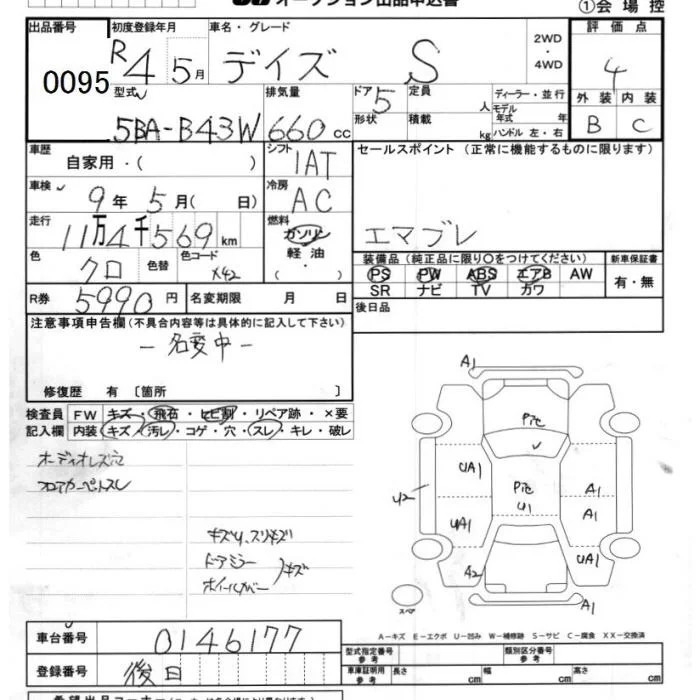 オークション出品申込書
①会場控
出品番号 初度登録年月 車名・グレード 評価点
0095 R4 5月 デイズ S 2WD・4WD 4
型式 排気量 ドア 5 定員 人 ディーラー・並行 外装 内装
5BA-B43W 660cc 形状 積載 kg モデル年式 年 ハンドル 左・右 B C
車歴 自家用・( ) シフト IAT セールスポイント (正常に機能するものに限ります)
車検 9年 5月( 日) 冷房 AC
走行 11万4千569km 燃料 ガソリン 軽油 エマブレ
色 クロ 色替 色コード X42
装備品(純正品に限り○をつけてください) 新車保証書
PS PW ABS エアB AW 有・無
SR ナビ TV カワ
R券 5990円 名変期限 月 日 後日品
注意事項申告欄(不具合内容等は具体的に記入して下さい)
-名変中-
修復歴 有 〔箇所 〕
検査員 FW キズ・飛石・ヒビ割・リペア跡・×要
記入欄 内装 キズ・汚レ・コゲ・穴・スレ・キレ・破レ
オーディオレス穴
フロアカーペットスレ
キズU、スリキズ
ドアミラー
ホイールカバー
キズ
A1
Pた
UA1
Pた
U1
A1
U2
A1
UA1
UA1
A2
A1
スペア
A-キズ E-エクボ U-凹み W-補修跡 S-サビ C-腐食 XX-交換済
車台番号 0146177
型式指定番号 参考 類別区分番号 参考
登録番号 後日
車庫証明用 参考 長さ cm 幅 cm 高さ cm